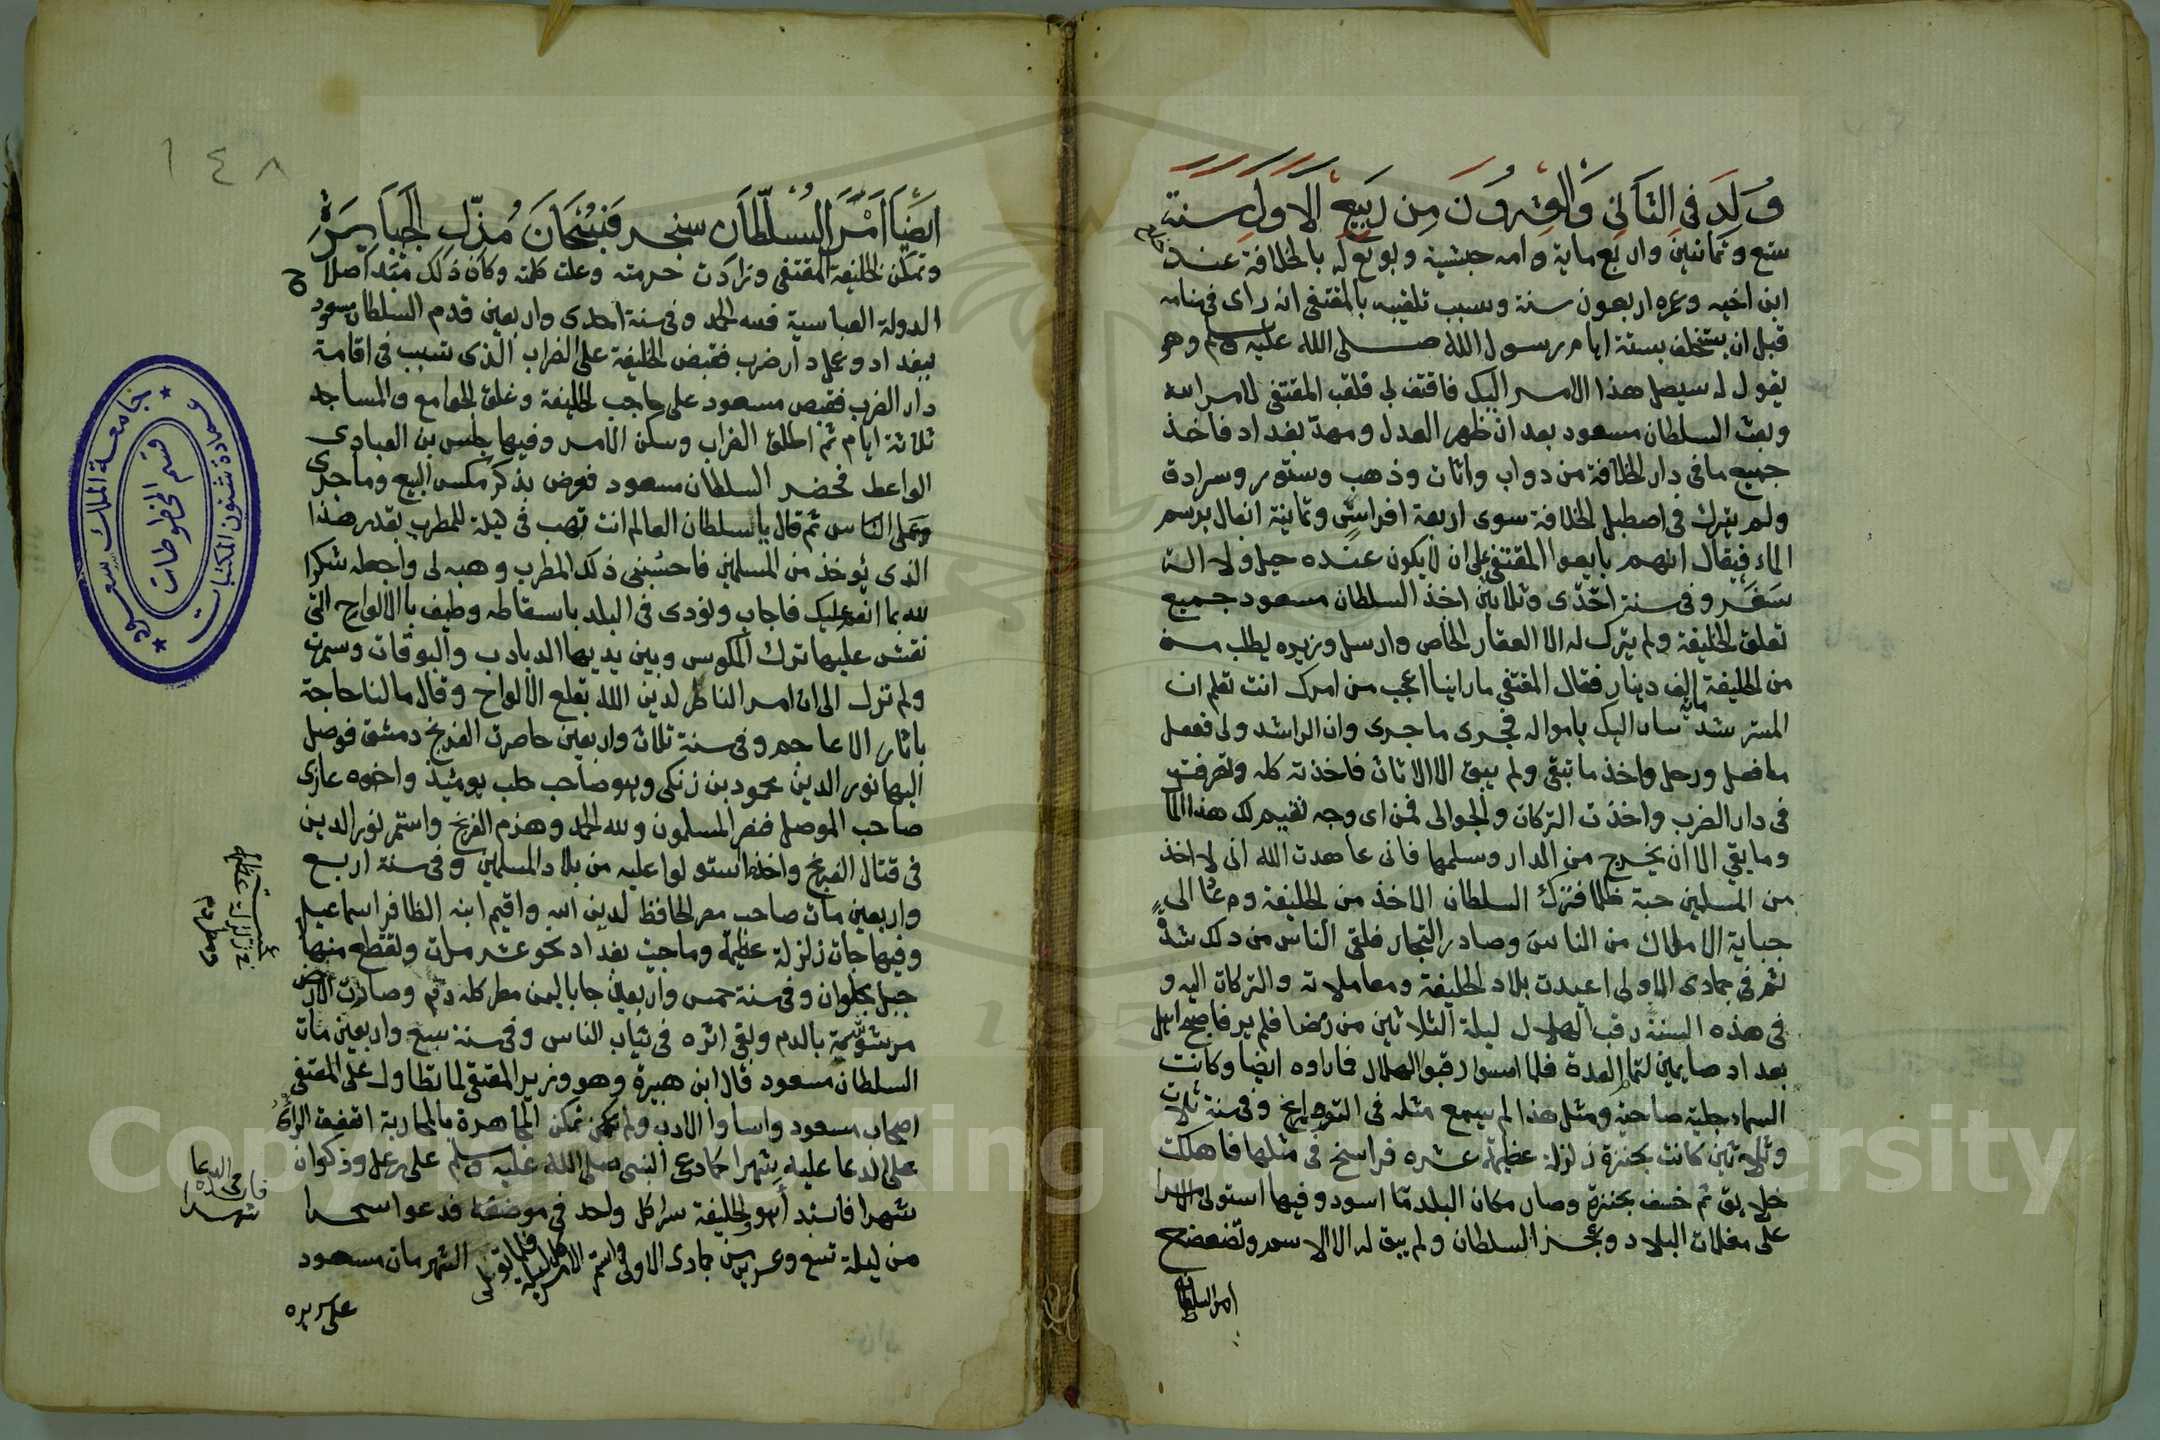 ولد في الثاني والعشرون من ربيع الاول سنة
تسع وثمانين واربع ماية وامه حبشية وبويع له بالخلافة عند خلع
ابن اخيه وعمره اربعون سنة وسبب تلقيبه بالمقتفى انه راى في منامه
قبل ان يستخلف بستة ايام رسول الله صلى الله عليه وسلم وهو
يقول له سيصل هذا الامر اليك فاقتف لي فلقب المقتفى لامر الله
وبعث السلطان مسعود بعد ان ظهر العدل ومهد بغداد فاخذ
جميع ما في دار الخلافة من دواب واثاث وذهب وستور وسرادق
ولم يترك في اصطبل الخلافة سوى اربعة افراس وثمانية ابغال برسم
الماء فيقال انهم بايعوا المقتفى على ان لا يكون عنده خيل ولا الة
سفر وفي سنة احدى وثلاثين اخذ السلطان مسعود جميع
تعلق الخليفة ولم يترك له الا العقار الخاص وارسل وزيره يطلب منه
من الخليفة ماية الف دينار فقال المقتفى ما راينا اعجب من امرك انت تعلم ان
المسترشد سار اليك بامواله فجرى ما جرى وان الراشد ولى ففعل
ما فعل ورحل واخذ ما تبقى ولم يبق الا الاثاث فاخذته كله وتصرفت
في دار الضرب واخذت التركات والجوالى فمن اى وجه نقيم لك هذا المال
وما بقي الا ان يخرج من الدار وسلمها فانى عاهدت الله انى لا اخذ
من المسلمين حبة ظلما فترك السلطان الاخذ من الخليفة وعاد الى
جباية الاملاك من الناس وصادر التجار فلقى الناس من ذلك شدة
ثم في جمادى الاولى اعيدت بلاد الخليفة ومعاملاته والتركات اليه و
في هذه السنة رقب الهلال ليلة الثلاثين من رمضا فلم ير فاصبح اهل
بغداد صايمين لتمام العدة فلما امسوا رقبوا الهلال فما راوه ايضا وكانت
السماء جلية صاحية ومثل هذا لم يسمع مثله في التواريخ وفي سنة ثلاث
وثلاثين كانت بجنزة زلزلة عظيمة عشره فراسخ في مثلها فاهلكت
خلايق ثم خسف بجنزة وصار مكان البلد ماء اسود وفيها استولى الامرا
على مغلات البلاد وعجز السلطان ولم يبق له الا الاسم وتضعضع
امر السلطان
١٤٨
ايضا امر السلطان سنجر فسبحان مذل الجبابرة
وتمكن الخليفة المقتفى وزادت حرمته وعلت كلمته وكان ذلك مبدا صلاح
الدولة العباسية فلله الحمد وفي سنة احدى واربعين قدم السلطان مسعود
ببغداد وعمل دار ضرب فقبض الخليفة على الضراب الذى تسبب في اقامة
دار الضرب فقبض مسعود على حاجب الخليفة وغلق الجوامع والمساجد
ثلاثة ايام ثم اطلق الضراب وسكن الامر وفيها جلس بن العبادى
الواعظ فحضر السلطان مسعود فعرض بذكر مكس البيع وما جرى
وعلى الناس ثم قال يا سلطان العالم انت تهب في ليلة للمطرب بقدر هذا
الذى يؤخذ من المسلمين فاحسبنى ذلك المطرب وهبه لى واجعله شكرا
لله بما انعم عليك فاجاب ونودى في البلد باسقاطه وطيف بالالواح التى
نقش عليها ترك المكوس وبين يديها الدبادب والبوقات وسمرت
ولم تزل الى ان امر الناصر لدين الله بقلع الالواح وقال ما لنا حاجة
باثار الاعاجم وفي سنة ثلاث واربعين حاصرت الفرنج دمشق فوصل
اليها نور الدين محمود بن زنكى وهو صاحب حلب يومئذ واخوه غازى
صاحب الموصل فنصر المسلمون ولله الحمد وهزم الفرنج واستمر نور الدين
في قتال الفرنج واخذ ما استولوا عليه من بلاد المسلمين وفي سنة اربع
واربعين مات صاحب مصر الحافظ لدين الله واقيم ابنه الظافر اسماعيل
وفيها جات زلزلة عظيمة وماجت بغداد نحو عشر مرات وتقطع منها
جبل بحلوان وفي سنة خمس واربعين جا باليمن مطر كله دم وصارت الارض
مرشوشة بالدم وبقى اثره في ثياب الناس وفي سنة سبع واربعين مات
السلطان مسعود قال ابن هبيرة وهو وزير المقتفى لما تطاول على المقتفى
اصحاب مسعود واساوا الادب ولم يمكن المجاهرة بالمحاربة اتفق الراى
على الدعا عليه شهرا كما دعى النبى صلى الله عليه وسلم على رعل وذكوان
شهرا فابتدا هو والخليفة سرا كل واحد في موضعه فدعوا سحرا
من ليلة تسع وعشرين من جمادى الاولى واستمر الامر كل ليلة فلما تكامل الشهر مات مسعود
على سريره
زلزلة عظيمة
في الدعا
شهرا
جامعة الملك سعود
عمادة شئون المكتبات
قسم المخطوطات
Copyright © King Saud University